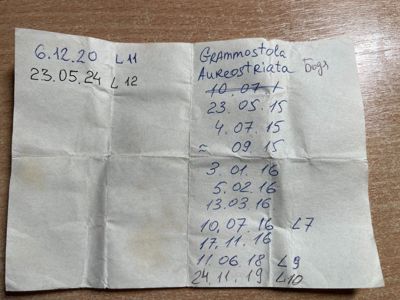 6.12.20 L 11
23.05.24 L 12
Grammostola
Aureostriata
10.07.1
23.05.15
4.07.15
≈ 09.15
3.01.16
5.02.16
13.03.16
10.07.16 L7
17.11.16
11.06.18 L9
24.11.19 L10